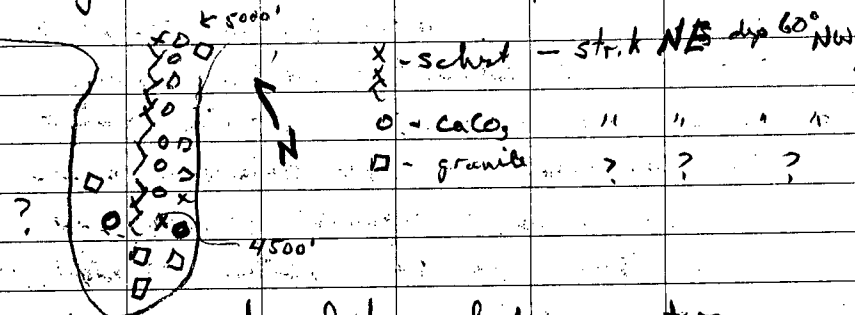 5000'
x - schist - strik NE dip 60° NW
o - CaCO3 " " " "
□ - granite ? ? ?
N
?
4500'